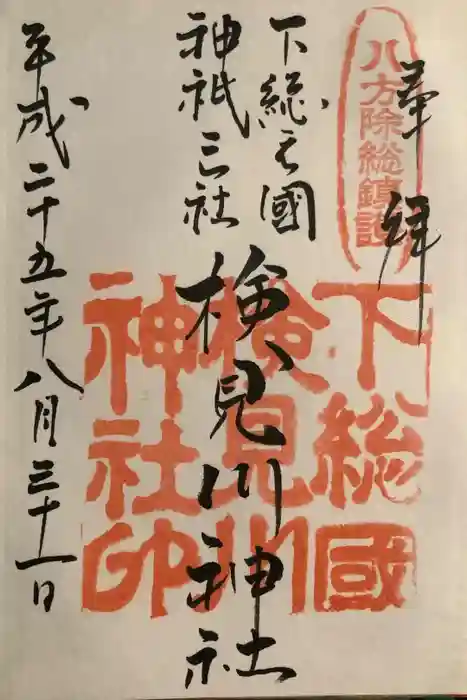 奉拝
八方除総鎮護
下総之國
神祇三社
検見川神社
下総國
検見川
神社印
平成二十五年八月三十一日